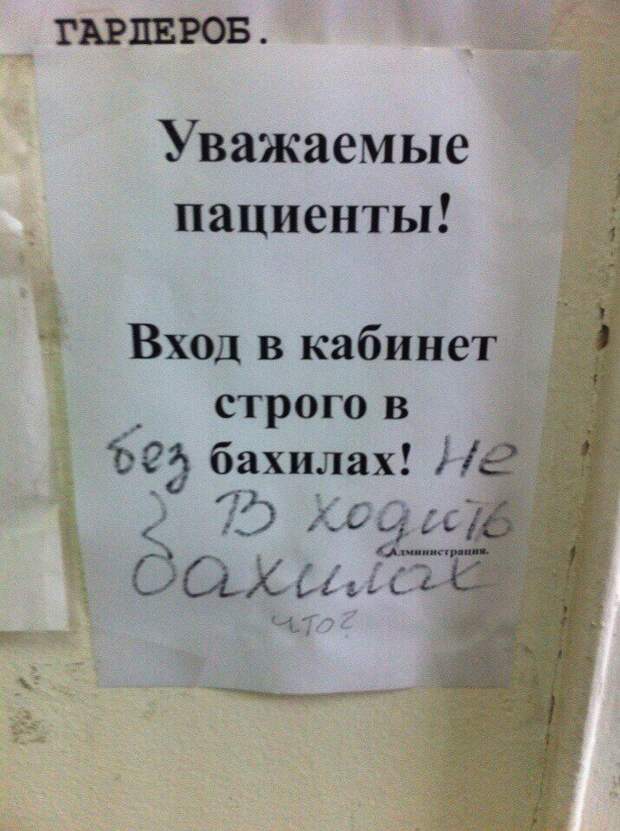 ГАРДЕРОБ.
Уважаемые
пациенты!
Вход в кабинет
строго в
без бахилах! Не
В ходить
Администрация.
бахилах
что?